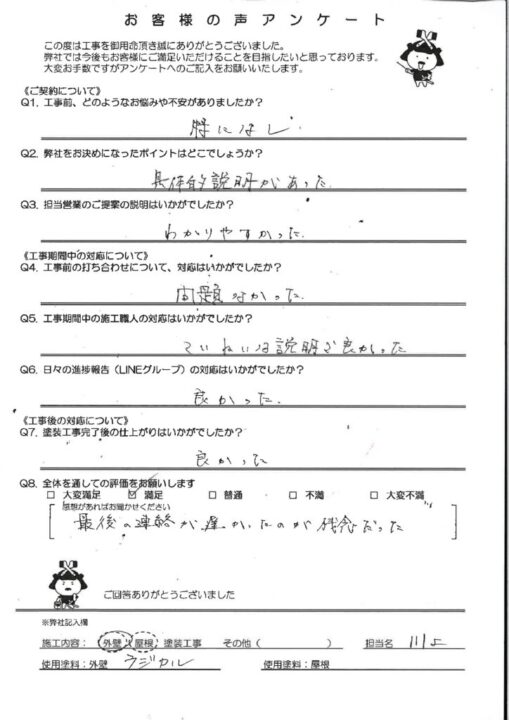 お客様の声アンケート
この度は工事を御用命頂き誠にありがとうございました。
弊社では今後もお客様にご満足いただけることを目指したいと思っております。
大変お手数ですがアンケートへのご記入をお願いいたします。
《ご契約について》
Q1. 工事前、どのようなお悩みや不安がありましたか?
特になし
Q2. 弊社をお決めになったポイントはどこでしょうか?
具体的説明があった
Q3. 担当営業のご提案の説明はいかがでしたか?
わかりやすかった
《工事期間中の対応について》
Q4. 工事前の打ち合わせについて、対応はいかがでしたか?
問題なかった
Q5. 工事期間中の施工職人の対応はいかがでしたか?
ていねいな説明で良かった
Q6. 日々の進捗報告(LINEグループ)の対応はいかがでしたか?
良かった
《工事後の対応について》
Q7. 塗装工事完了後の仕上がりはいかがでしたか?
良かった
Q8. 全体を通しての評価をお願いします
□ 大変満足 ☑ 満足 □ 普通 □ 不満 □ 大変不満
感想があればお聞かせください
最後の連絡が遅かったのが残念だった
ご回答ありがとうございました
※弊社記入欄
施工内容: 外壁 屋根 塗装工事 その他( ) 担当名
使用塗料:外壁 ラジカル 使用塗料:屋根